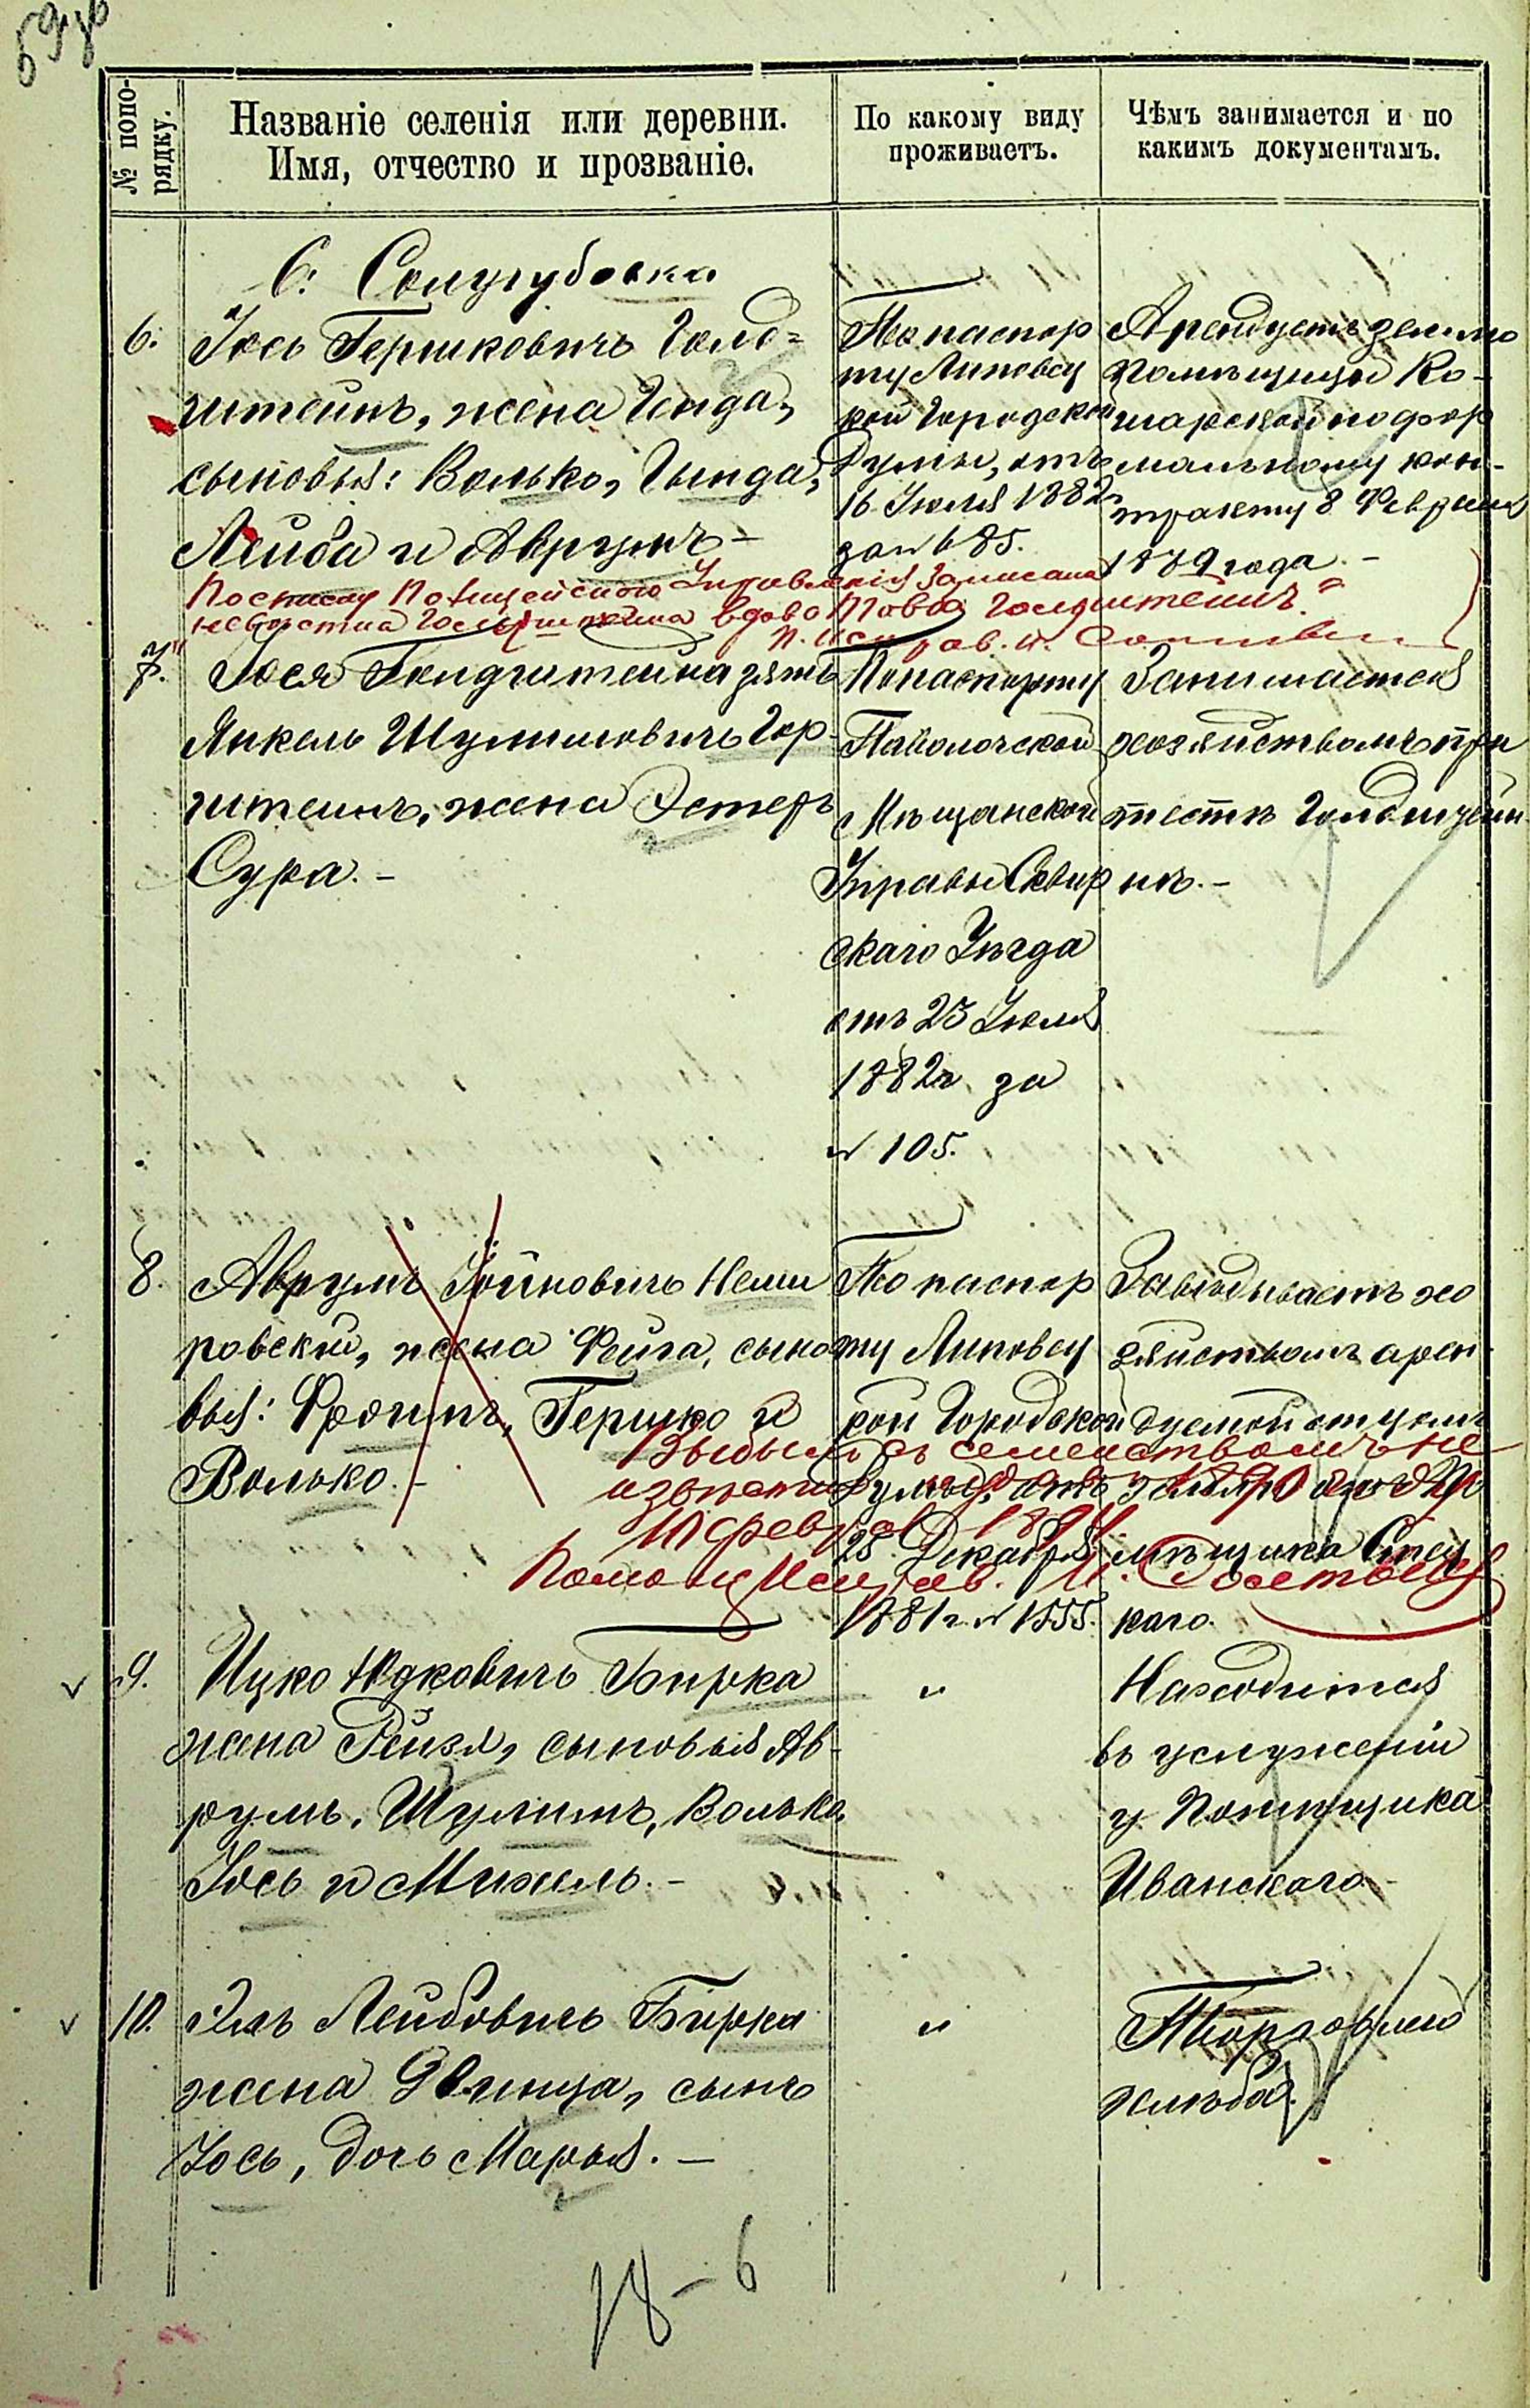 59 об
№ попо-
рядку.
Названіе селенія или деревни.
Имя, отчество и прозваніе.
По какому виду
проживаетъ.
Чѣмъ занимается и по
какимъ документамъ.
С. Сологубовка
6.
Іось Гершковичъ Голд=
штейнъ, жена Генда,
сыновья: Волько, Гында,
Лейба и Аврумъ –
По паспор
ту Липовец
кой Городской
Думы, отъ
16 Іюля 1882 г
за № 685.
Арендуетъ землю
Помѣщицы Ко-
марской по фор
мальному кон-
тракту 8 Февраля
1879 года. –
Полицейскаго Управленія Записана
невѣстка Голдштейна вдова Голдштейнъ.
7.
Іося Голдштейна зять
Янкель Шулимовичъ Гор-
штейнъ, жена Эстеръ
Сура. –
По паспорту
Паволочской
Мѣщанской
Управы Сквир
скаго Уѣзда
отъ 23 Іюля
1882 г. за
№ 105.
Занимается
хозяйствомъ при
тестѣ Голдштейн
нѣ. –
8.
Аврумъ Іойновичъ Неми
ровскій, жена Фейга, сыно
вья: Фроимъ, Гершко и
Волько. –
По паспор
ту Липовец
кой Городской
Думы, отъ
28 Декабря
1881 г. № 1555.
Завѣдываетъ хо
зяйствомъ арен
дуемой отцомъ
земли по
мѣщика
каго.
Выбылъ съ семействомъ не
извѣстно
10 февр. 1891
Помощ. Исправ.
9.
Ицко Юдковичъ Бирка
жена Рейзя, сыновья Ав-
румъ, Шулимъ, Волько,
Іось и Михель. –
"
Находится
въ услуженіи
у Помѣщика
Иванскаго –
10.
Эль Лейбовичъ Бирка
жена Двинца, сынъ
Іось, дочь Марья. –
"
Торговлею
хлѣба.
18 – 6